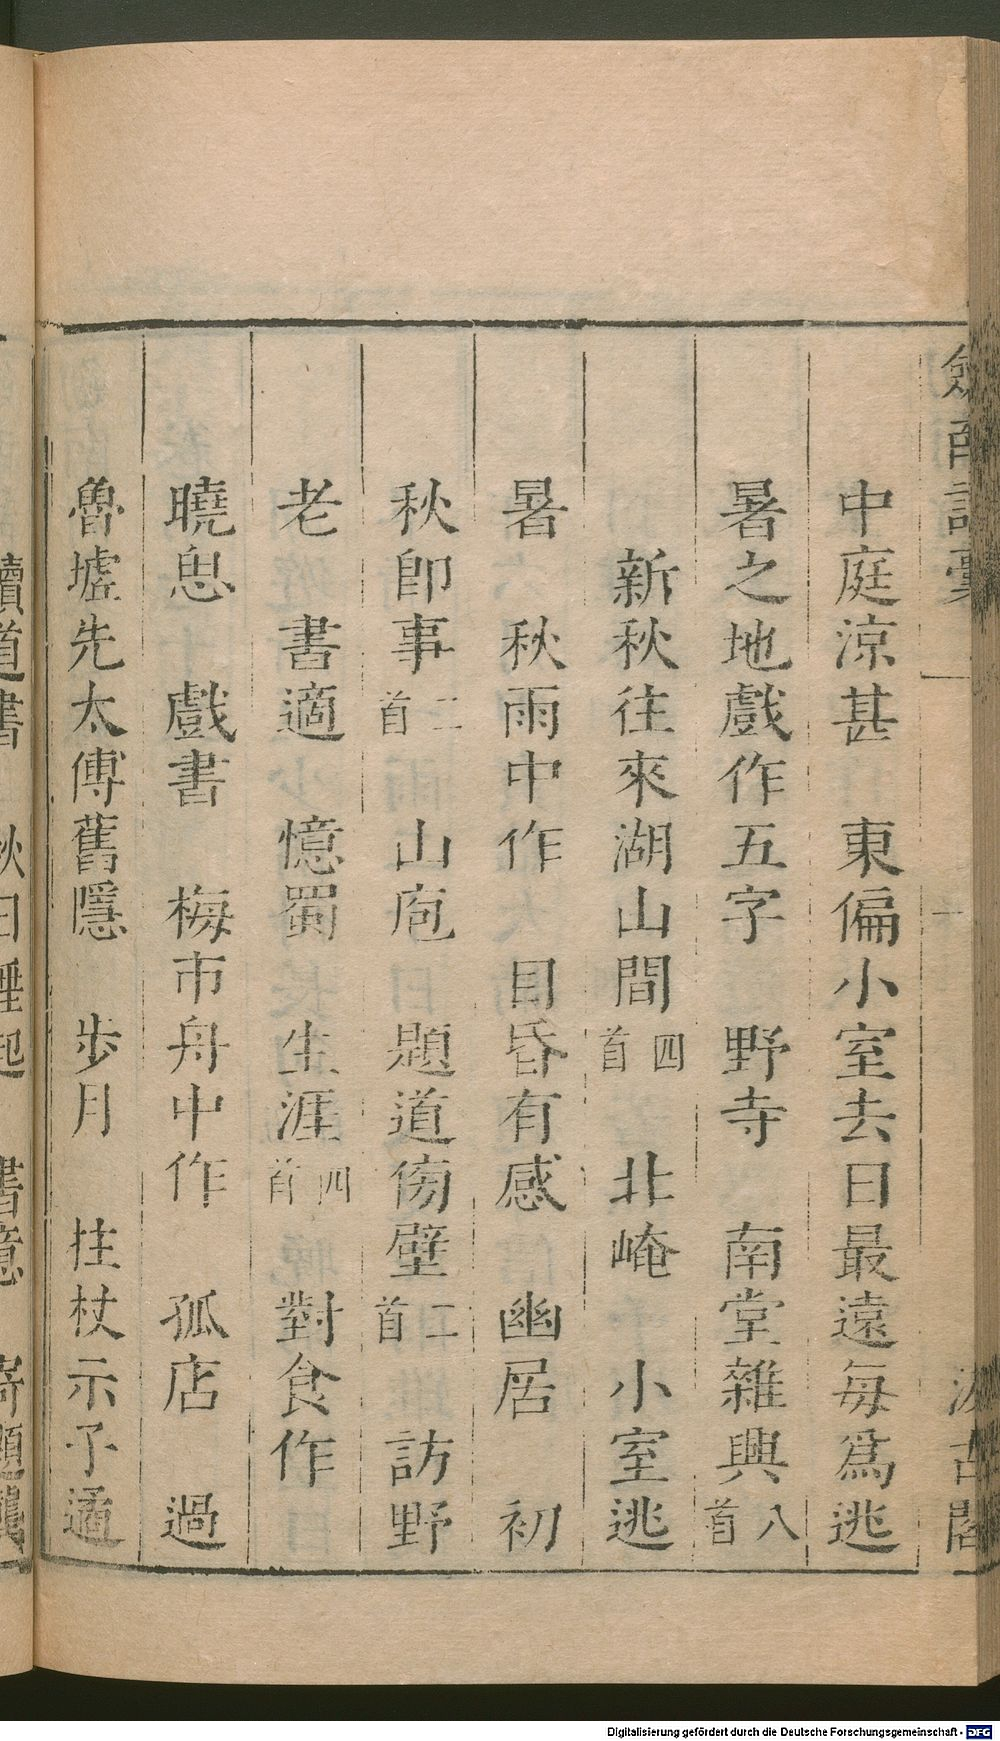 劔南詩藁
汲古閣
中庭涼甚　東偏小室去日最遠每爲逃
暑之地戲作五字　野寺　南堂雜興八首
新秋往來湖山間四首　北崦　小室逃
暑　秋雨中作　目昏有感　幽居　初
秋卽事二首　山庖　題道傍壁二首　訪野
老　書適　憶蜀　生涯四首　對食作
曉思　戲書　梅市舟中作　孤店　過
魯墟先太傅舊隱　步月　拄杖示予遹
讀道書　秋日睡起　書意　寄題龔
Digitalisierung gefördert durch die Deutsche Forschungsgemeinschaft - DFG